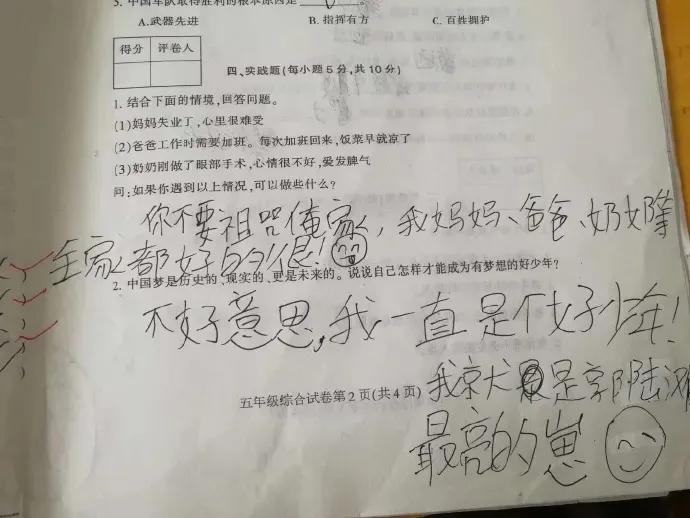 中国军队取得胜利的根本原因是
A.武器先进 B. 指挥有方 C. 百姓拥护
得分 评卷人
四、实践题(每小题5分,共10分)
1. 结合下面的情境,回答问题。
(1)妈妈失业了,心里很难受
(2)爸爸工作时需要加班。每次加班回来,饭菜早就凉了
(3)奶奶刚做了眼部手术,心情很不好,爱发脾气
问:如果你遇到以上情况,可以做些什么?
你不要祖咒俺家,我妈妈、爸爸、奶奶等
全家都好的很!
2. 中国梦是历史的、现实的、更是未来的。说说自己怎样才能成为有梦想的好少年?
不好意思,我一直是个好少年!
五年级综合试卷第2页(共4页)
我 是
最高的崽